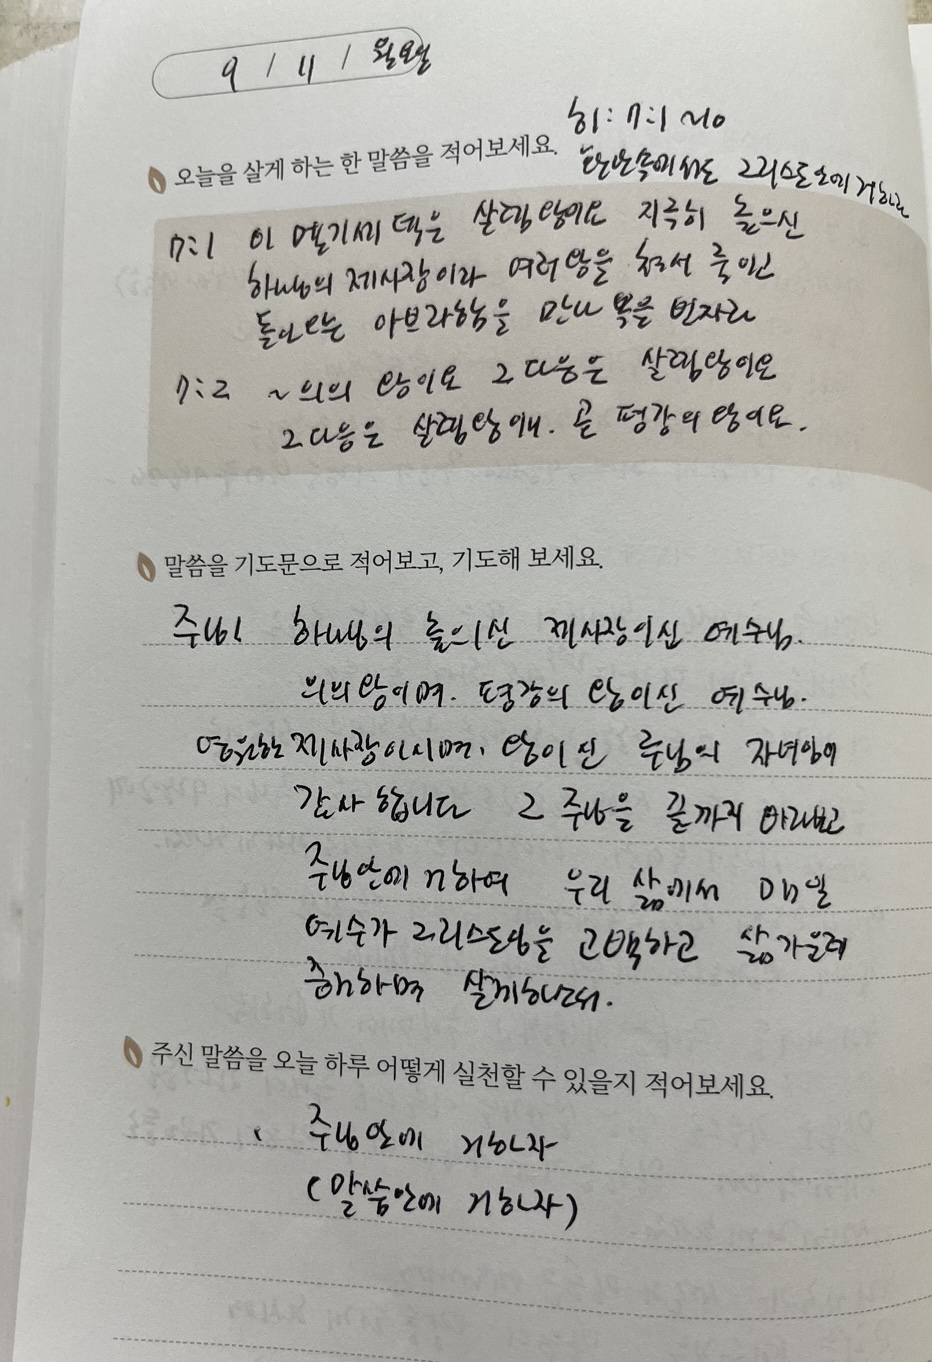 9 / 11 / 월요일
히: 7:1 ~10
오늘을 살게 하는 한 말씀을 적어보세요.
그리스도안에 거하라
7:1 이 멜기세덱은 살렘왕이요 지극히 높으신
하나님의 제사장이라 여러왕을 쳐서 죽이고
돌아오는 아브라함을 만나 복을 빈자라
7:2 ~ 의의 왕이요 그 다음은 살렘왕이요
그다음은 살렘왕이니. 곧 평강의 왕이요.
말씀을 기도문으로 적어보고, 기도해 보세요.
주님! 하나님의 높으신 제사장이신 예수님.
의의왕이며. 평강의 왕이신 예수님.
영원한 제사장이시며, 왕이신 주님의 자녀임에
감사합니다 그 주님을 끝까지 바라보고
주님안에 거하여 우리 삶에서 매일
예수가 그리스도임을 고백하고 삶가운데
증거하며 살게하소서.
주신 말씀을 오늘 하루 어떻게 실천할 수 있을지 적어보세요.
주님안에 거하자
(말씀안에 거하자)